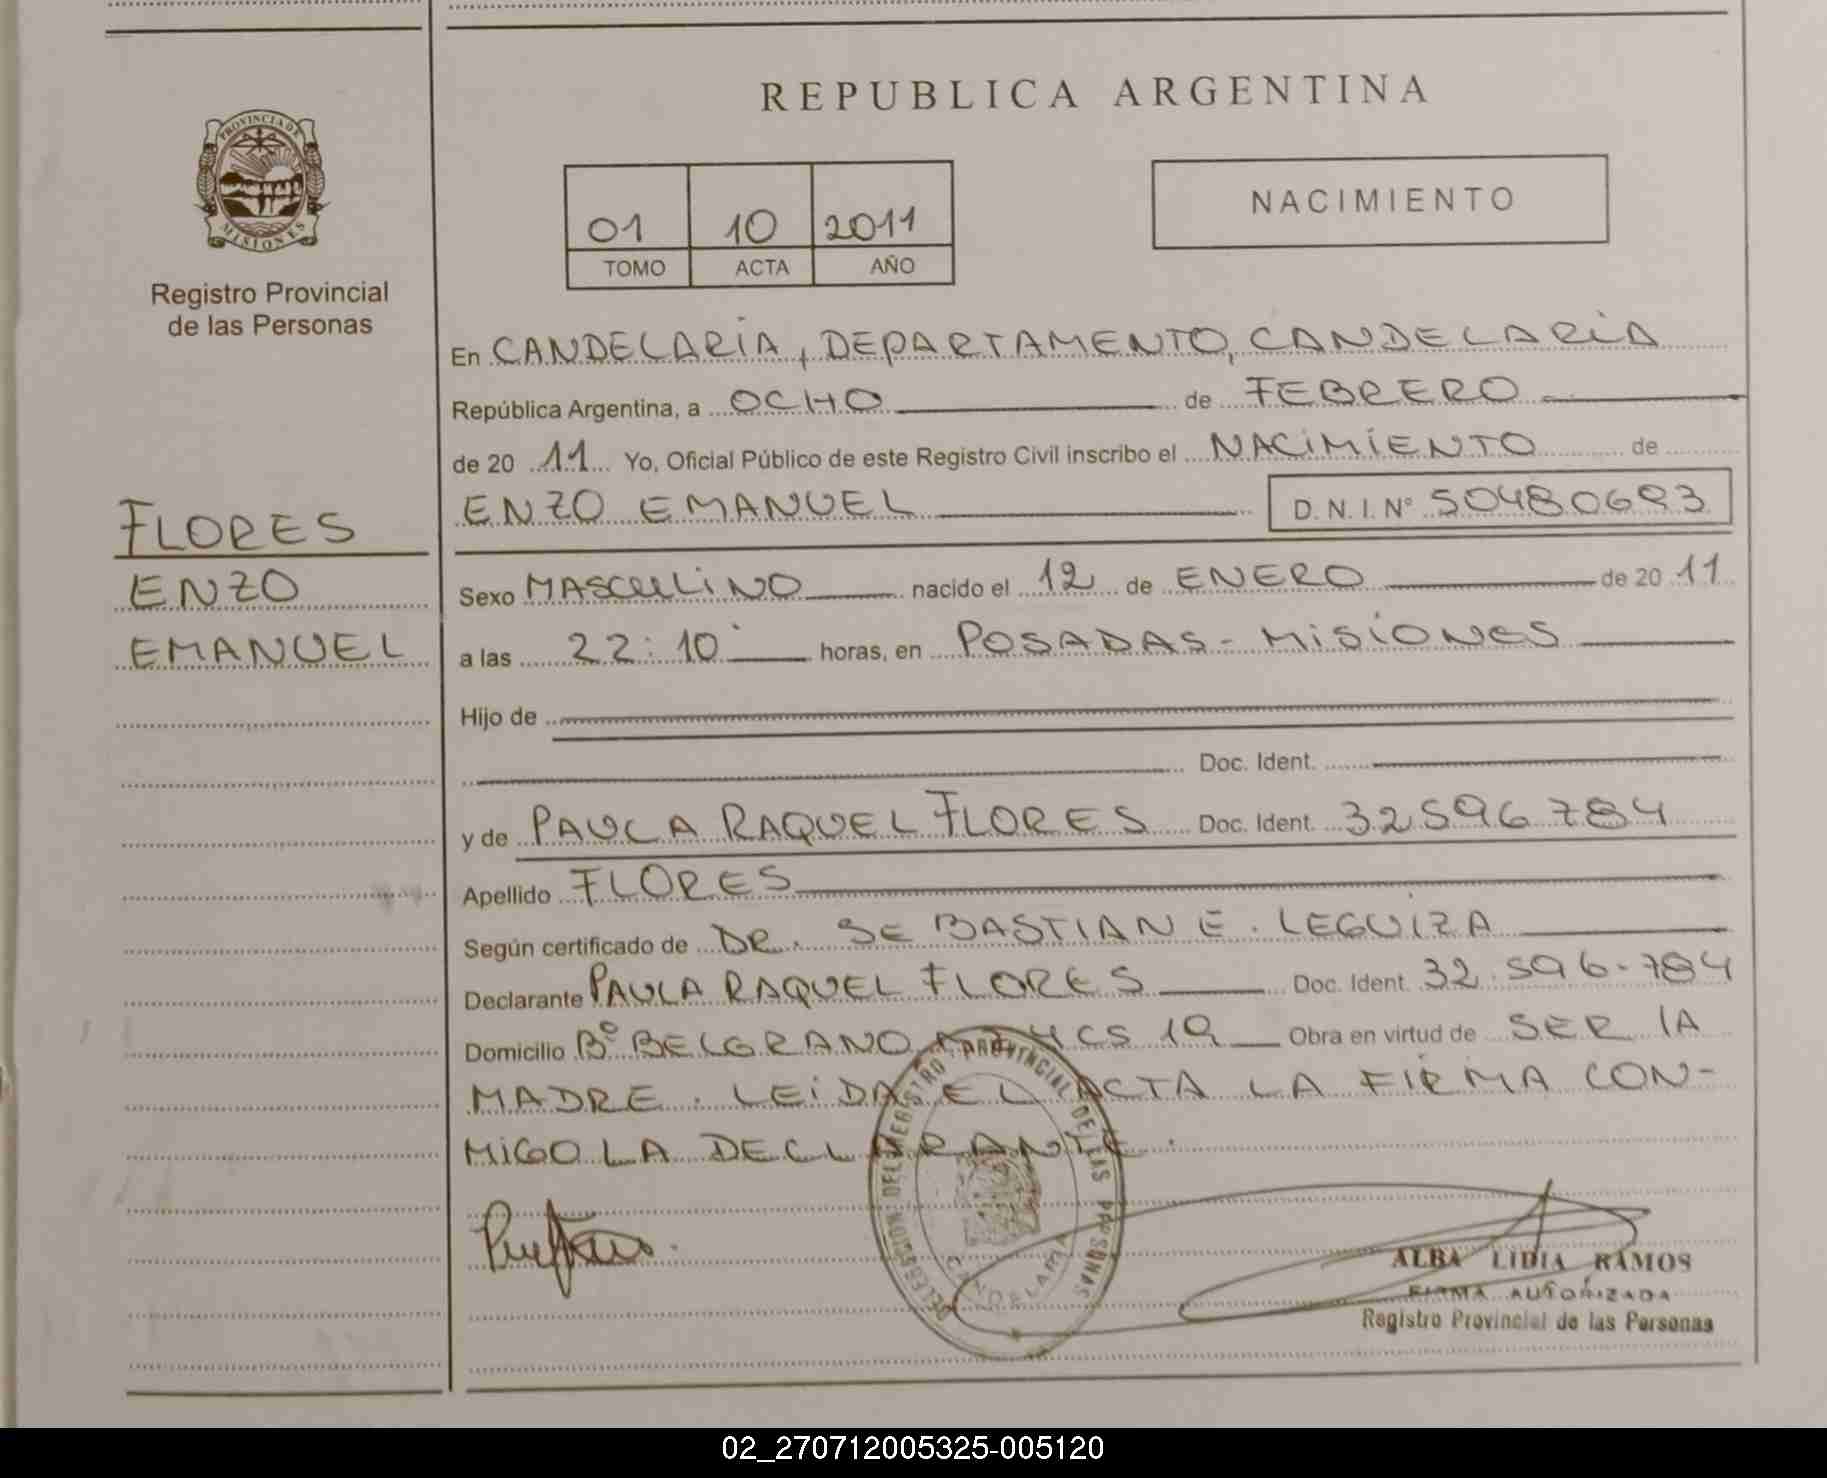 REPUBLICA ARGENTINA
PROVINCIA DE MISIONES
Registro Provincial
de las Personas
01 10 2011
TOMO ACTA AÑO
NACIMIENTO
En CANDELARIA, DEPARTAMENTO, CANDELARIA
República Argentina, a OCHO de FEBRERO
de 20 11 Yo, Oficial Público de este Registro Civil inscribo el NACIMIENTO de
FLORES
ENZO
EMANUEL
ENZO EMANUEL D.N.I.Nº 50480693
Sexo MASCULINO nacido el 12 de ENERO de 20 11
a las 22:10 horas, en POSADAS - MISIONES
Hijo de
Doc. Ident.
y de PAULA RAQUEL FLORES Doc. Ident. 32596784
Apellido FLORES
Según certificado de DR. SEBASTIAN E. LEGUIZA
Declarante PAULA RAQUEL FLORES Doc. Ident. 32.596-784
Domicilio Bº BELGRANO CS 19 Obra en virtud de SER LA
MADRE. LEIDA EL ACTA LA FIRMA CON-
MIGO LA DECLARANTE.
DELEGACION DEL REGISTRO PROVINCIAL DE LAS PERSONAS
CANDELARIA
ALBA LIDIA RAMOS
FIRMA AUTORIZADA
Registro Provincial de las Personas
02_270712005325-005120